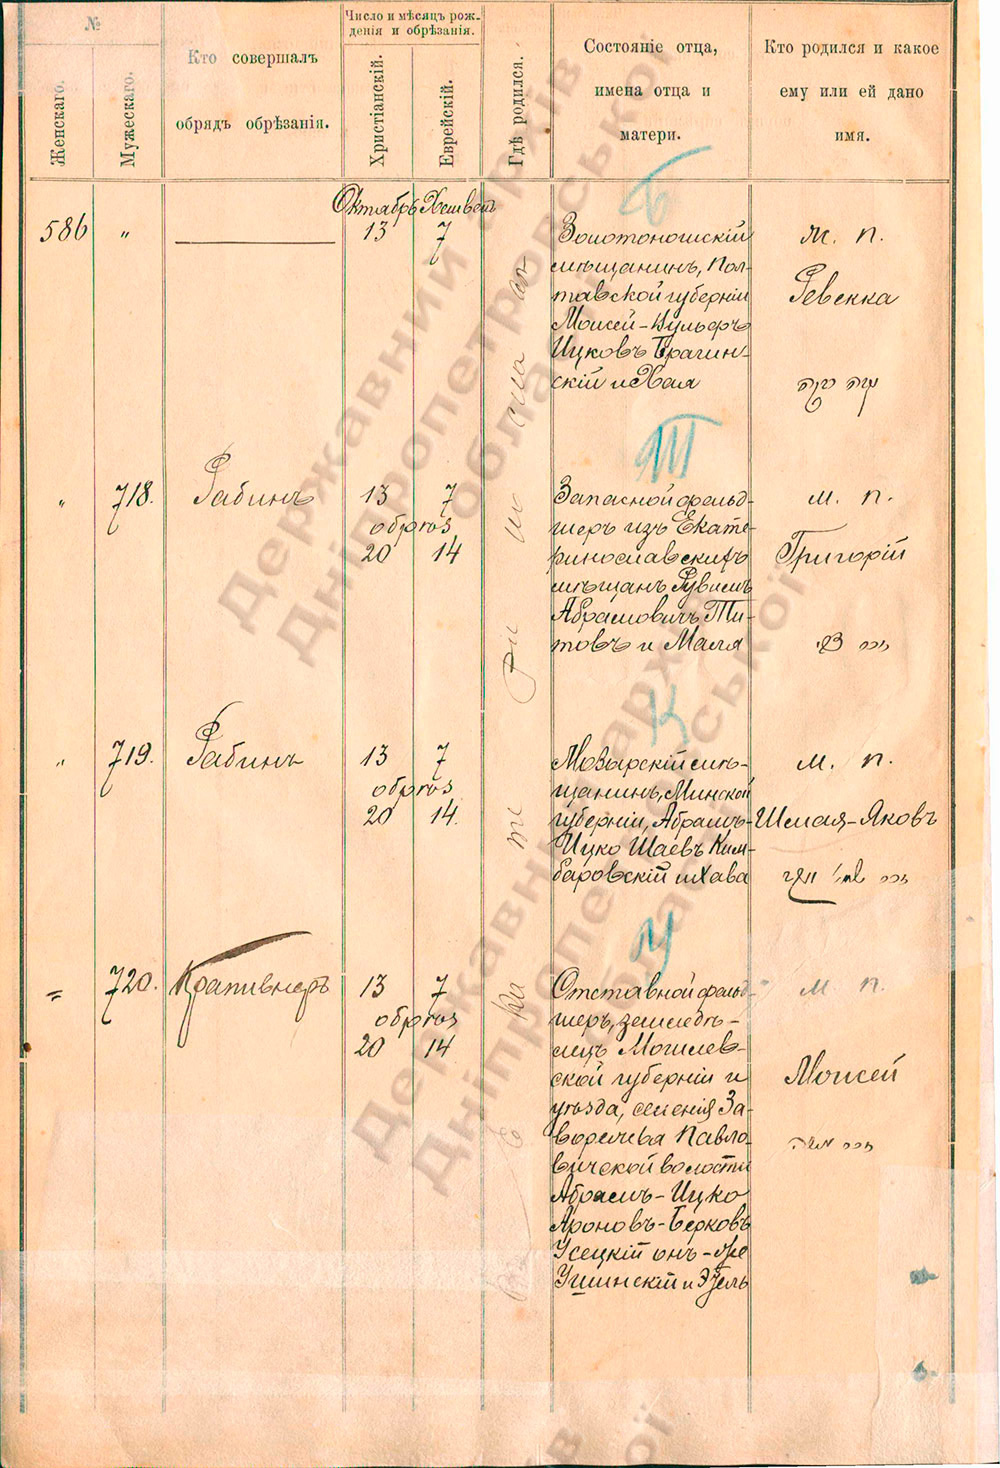 №
Женскаго.
Мужескаго.
Кто совершалъ
обрядъ обрѣзанія.
Число и мѣсяцъ рож-
денія и обрѣзанія.
Христіанскій.
Еврейскій.
Гдѣ родился.
Состояніе отца,
имена отца и
матери.
Кто родился и какое
ему или ей дано
имя.
Октябрь Хешвень
586 " 13 7
Золотоношскій
мѣщанинъ, Пол-
тавской губерніи
Моисей-Вульфъ
Ицковъ Брагин-
скій и Хая
м. п.
Ревекка
Б
" 718. Рабинъ 13 7
обрѣз
20 14
Запасной фельд-
шеръ изъ Екате-
ринославскихъ
мѣщанъ Рувимъ
Абрамовичъ Ти-
товъ и Маля
м. п.
Григорій
Т
" 719. Рабинъ 13 7
обрѣз
20 14.
Мозырскій мѣ-
щанинъ, Минской
губерніи, Абрамъ-
Ицко Шаевъ Ким-
баровскій и Хава
м. п.
Шмая-Яковъ
К
" 720. Крапивнеръ 13 7
обрѣз
20 14
Отставной фельд-
шеръ, землedѣ-
лецъ Могилев-
ской губерніи и
уѣзда, селенія За-
Павло-
вичской волости
Абрамъ-Ицко
Ароновъ-Берковъ
Усецкій онъ-же
Ушинскій и Этель
м. п.
Моисей
У
Державний архів
Дніпропетровської
області
Державний архів
Дніпропетровської
області